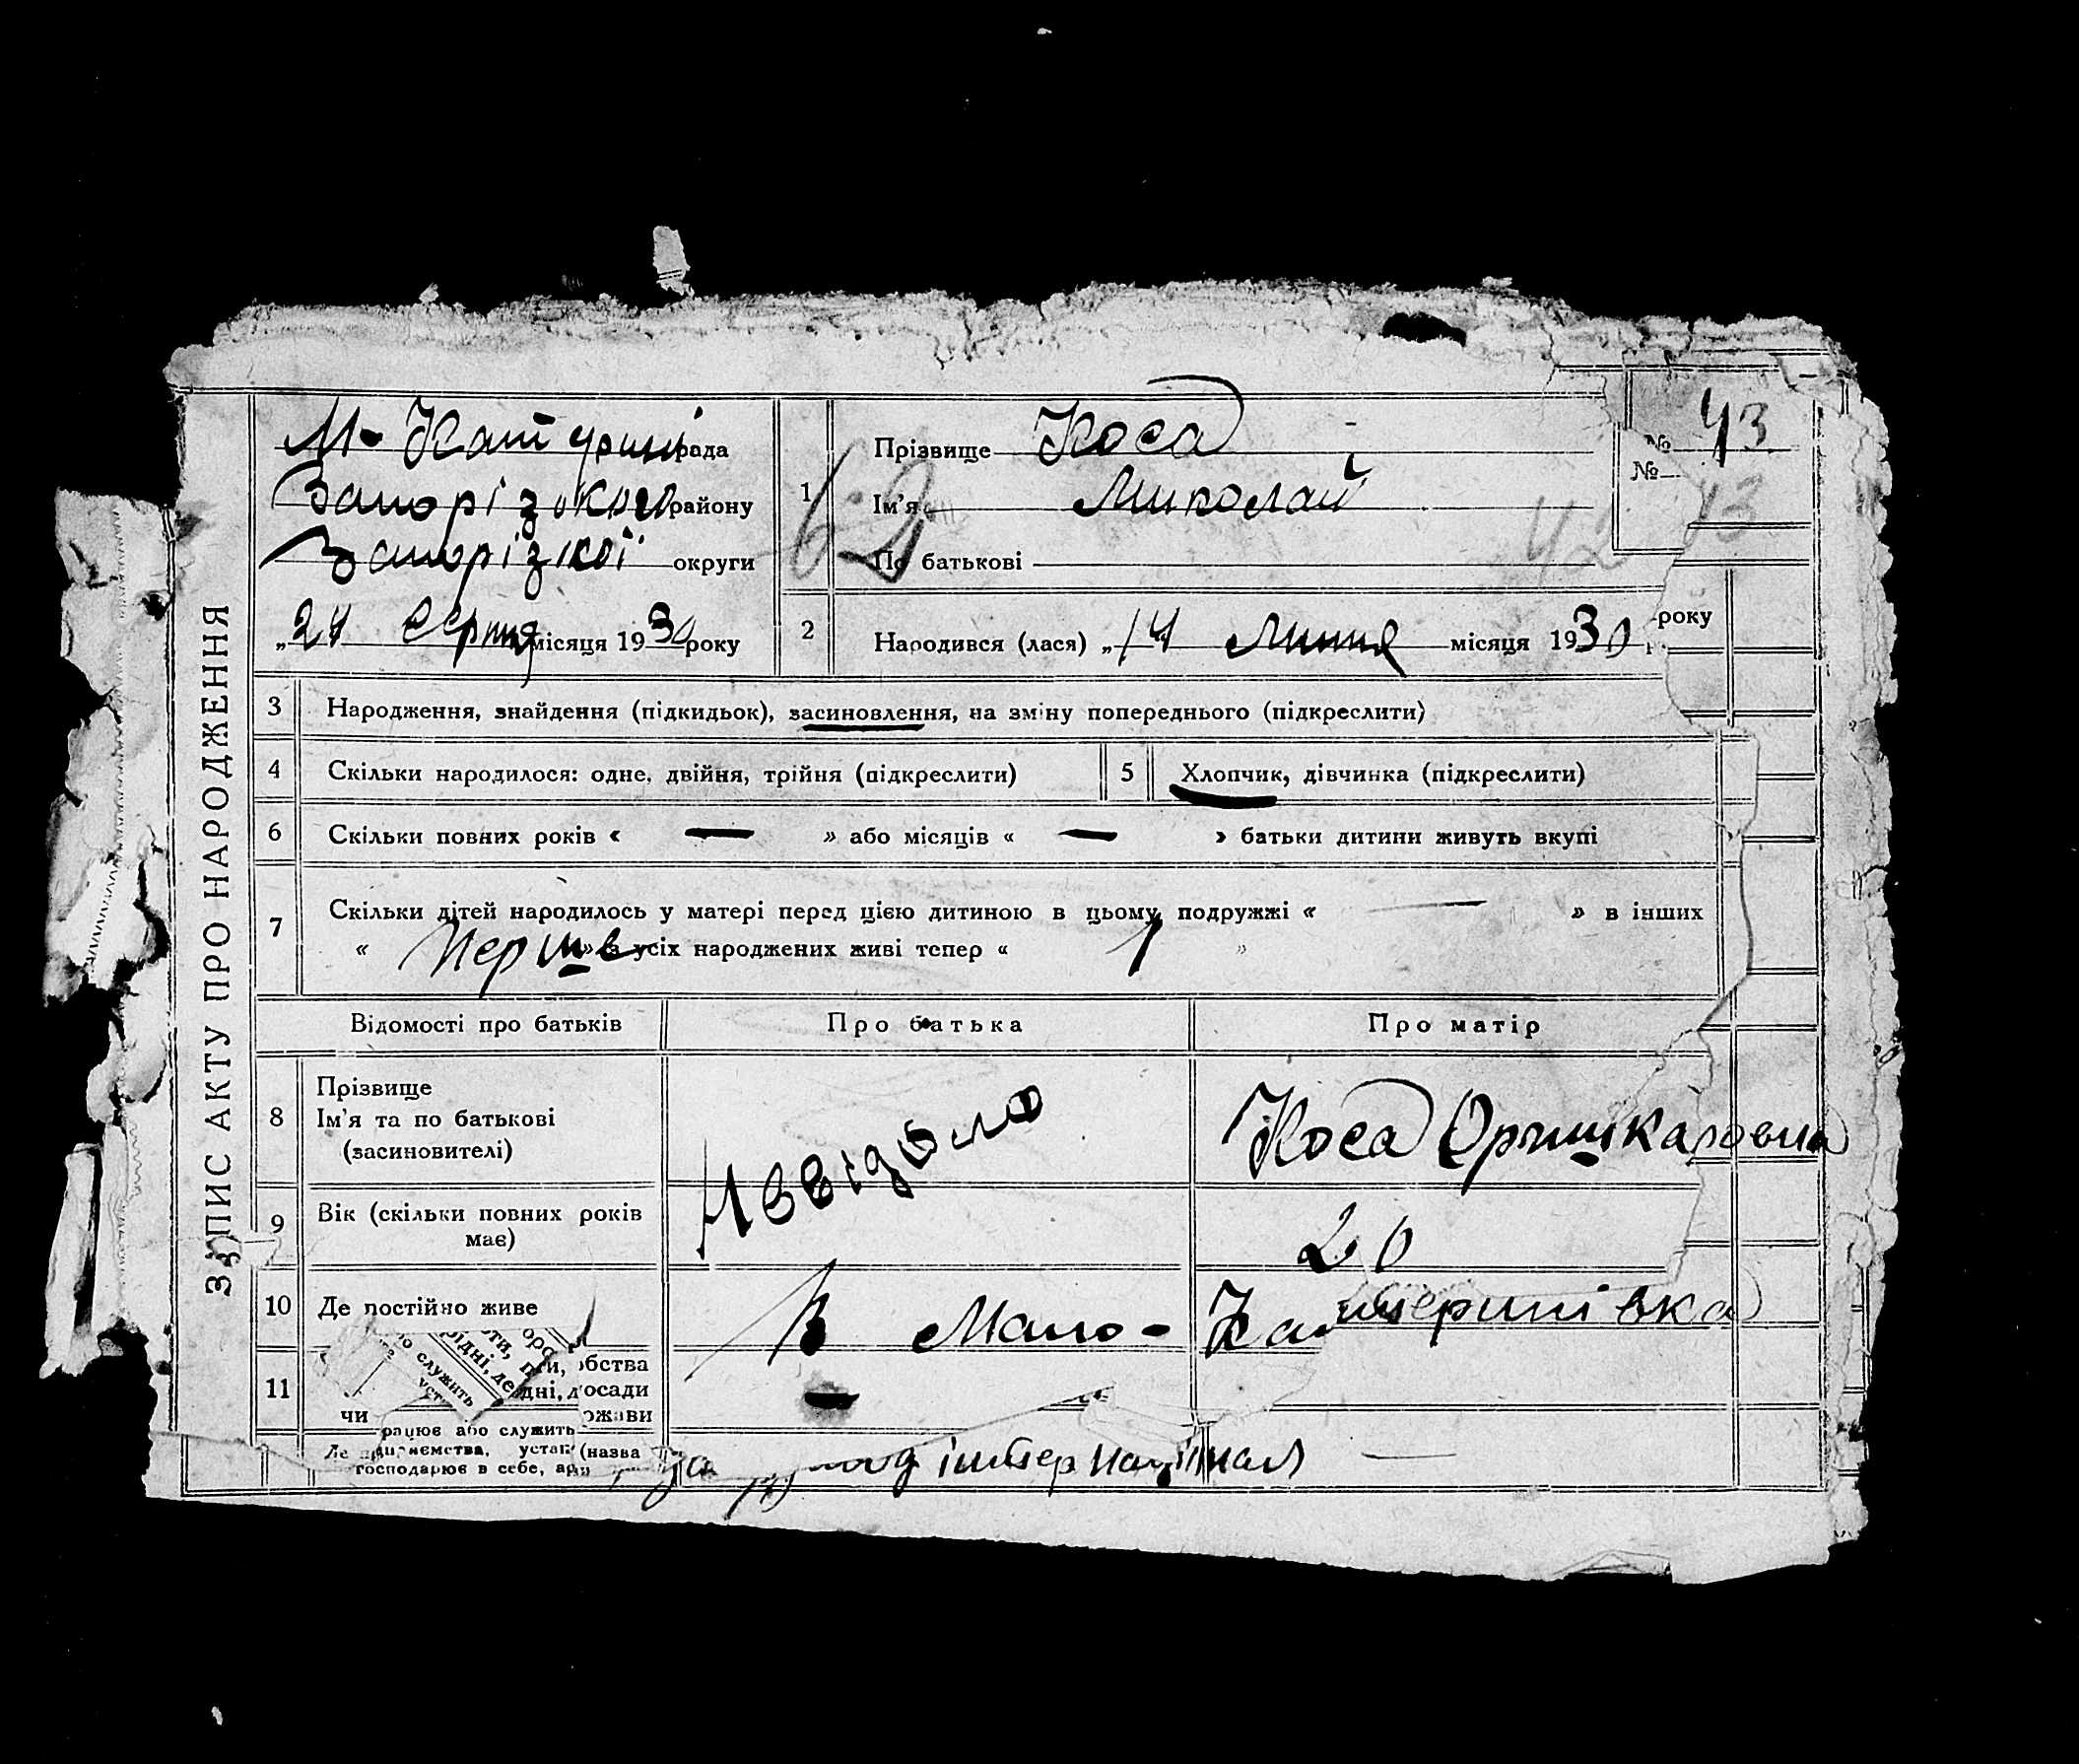 ЗАПИС АКТУ ПРО НАРОДЖЕННЯ
М- Кат рада
Запорізького району
Запорізкої округи
„24 Серпня місяця 1930 року
1
Прізвище Коса
Ім'я Миколай
По батькові
62
42
№ 43
№ 43
2
Народився (лася) „14 Липня місяця 1930 р
року
3
Народження, знайдення (підкидьок), засиновлення, на зміну попереднього (підкреслити)
4
Скільки народилося: одне, двійня, трійня (підкреслити)
5
Хлопчик, дівчинка (підкреслити)
6
Скільки повних років « — » або місяців « — » батьки дитини живуть вкупі
7
Скільки дітей народилось у матері перед цією дитиною в цьому подружжі « — » в інших
« Перше » з усіх народжених живі тепер « 1 »
Відомості про батьків
Про батька
Про матір
8
Прізвище
Ім'я та по батькові
(засиновителі)
Коса
9
Вік (скільки повних років
має)
20
10
Де постійно живе
В Мало- Катеринівка
11
бства
дні, посади
чи
ржави
служить
рацює або служить
(назва
господарює в себе,
інтернаціонал —